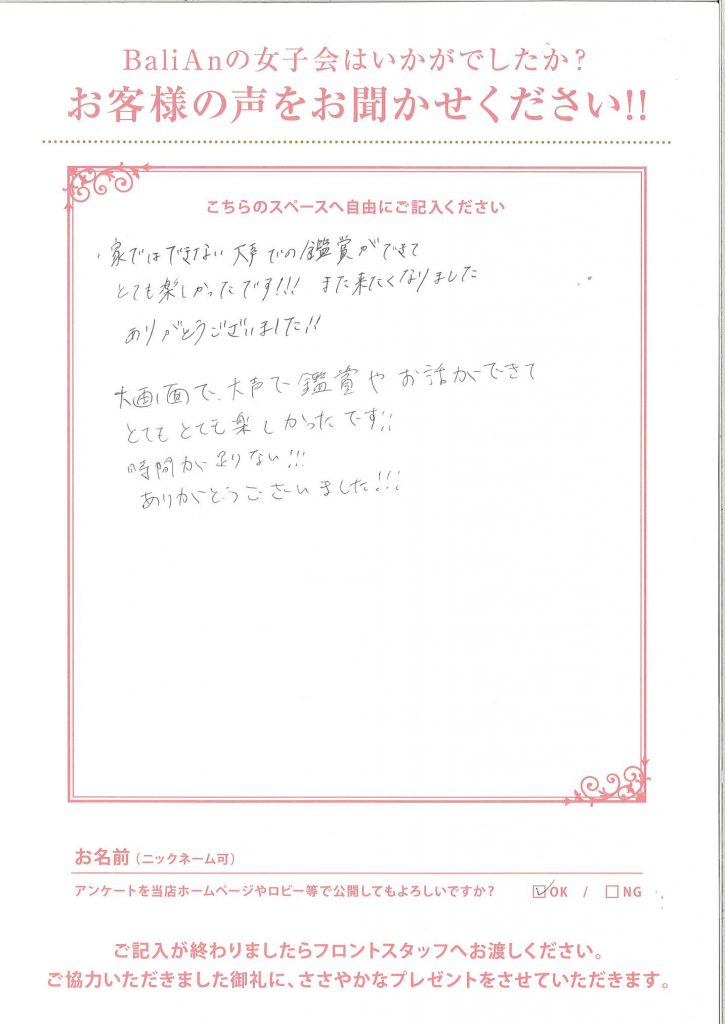 BaliAnの女子会はいかがでしたか?
お客様の声をお聞かせください!!
こちらのスペースへ自由にご記入ください
・家ではできない大声での鑑賞ができて
とても楽しかったです!!! また来たくなりました
ありがとうございました!!
大画面で、大声で鑑賞やお話ができて
とてもとても楽しかったです!!
時間が足りない!!!
ありがとうございました!!!
お名前(ニックネーム可)
アンケートを当店ホームページやロビー等で公開してもよろしいですか? ☑OK / □NG
ご記入が終わりましたらフロントスタッフへお渡しください。
ご協力いただきました御礼に、ささやかなプレゼントをさせていただきます。